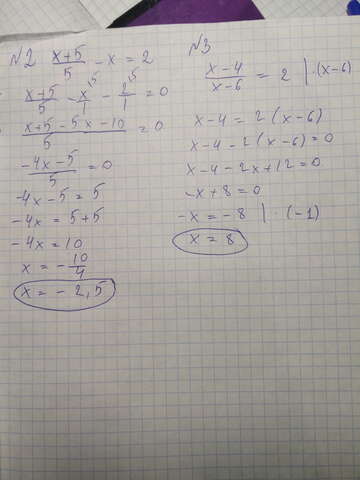 №2 x+5/5 - x = 2
x+5/5 - x⁵/1 - 2⁵/1 = 0
x+5-5x-10/5 = 0
-4x-5/5 = 0
-4x-5 = 5
-4x = 5+5
-4x = 10
x = - 10/4
x = - 2,5
№3
x-4/x-6 = 2 | ·(x-6)
x-4 = 2(x-6)
x-4-2(x-6)=0
x-4-2x+12=0
-x+8=0
-x = -8 | ·(-1)
x = 8